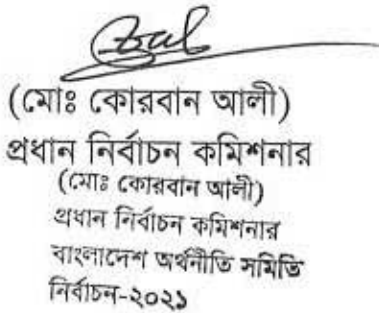 (মোঃ কোরবান আলী)
প্রধান নির্বাচন কমিশনার
(মোঃ কোরবান আলী)
প্রধান নির্বাচন কমিশনার
বাংলাদেশ অর্থনীতি সমিতি
নির্বাচন-২০২১